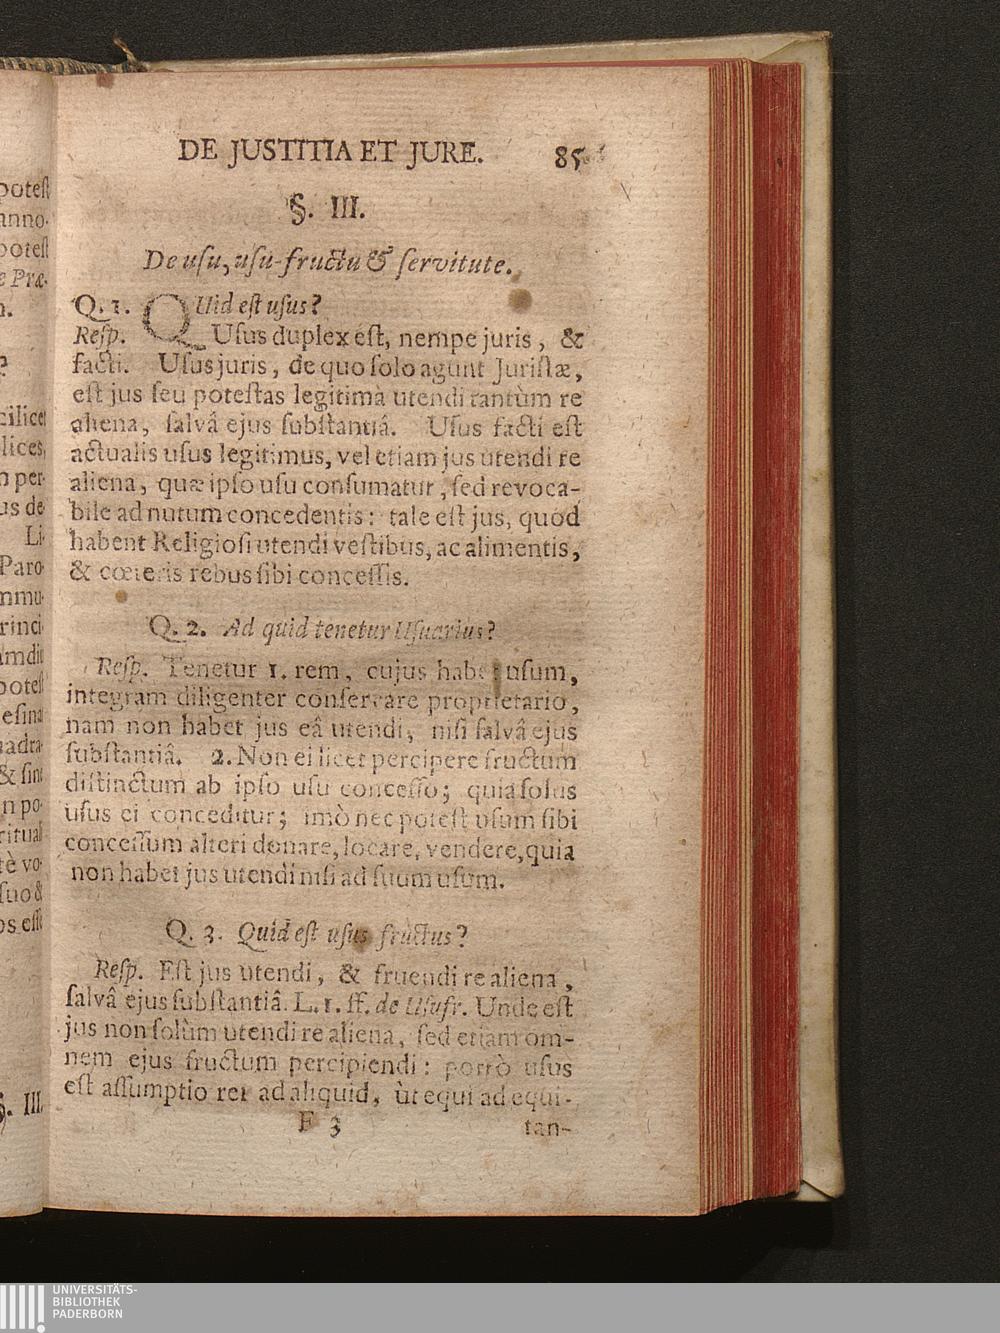 DE JUSTITIA ET JURE. 85
§. III.
De usu, usu-fructu & servitute.
Q. 1. QUid est usus?
Resp. Usus duplex est, nempe juris, &
facti. Usus juris, de quo solo agunt Juristæ,
est jus seu potestas legitima utendi tantùm re
aliena, salvâ ejus substantiâ. Usus facti est
actualis usus legitimus, vel etiam jus utendi re
aliena, quæ ipso usu consumatur, sed revoca-
bile ad nutum concedentis: tale est jus, quod
habent Religiosi utendi vestibus, ac alimentis,
& cœteris rebus sibi concessis.
Q. 2. Ad quid tenetur Usuarius?
Resp. Tenetur 1. rem, cujus habet usum,
integram diligenter conservare proprietario,
nam non habet jus eâ utendi, nisi salvâ ejus
substantiâ. 2. Non ei licet percipere fructum
distinctum ab ipso usu concesso; quia solus
usus ei conceditur; imò nec potest usum sibi
concessum alteri donare, locare, vendere, quia
non habet jus utendi nisi ad suum usum.
Q. 3. Quid est usus fructus?
Resp. Est jus utendi, & fruendi re aliena,
salvâ ejus substantiâ. L. 1. ff. de Usufr. Unde est
jus non solùm utendi re aliena, sed etiam om-
nem ejus fructum percipiendi: porrò usus
est assumptio rei ad aliquid, ùt equi ad equi-
F 3 tan-
potest
anno-
potest
e Præ-
n.
?
cilicet
lices,
n per-
us de-
Li-
Paro-
mmu-
rinci-
amdiu
potest
esina
uadra-
& sint
n po-
ritual
tè vo-
suo &
os esse
§. III.
UNIVERSITÄTS-
BIBLIOTHEK
PADERBORN